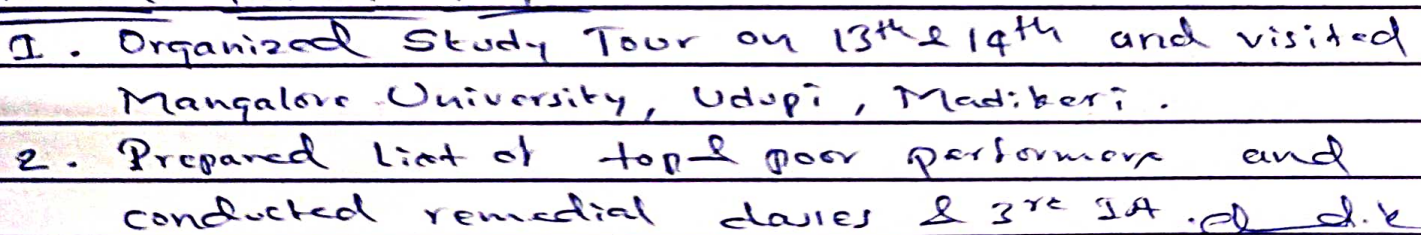 1. Organized Study Tour on 13th & 14th and visited
Mangalore University, Udupi, Madikeri.
2. Prepared list of top & poor performers and
conducted remedial classes & 3rd IA.